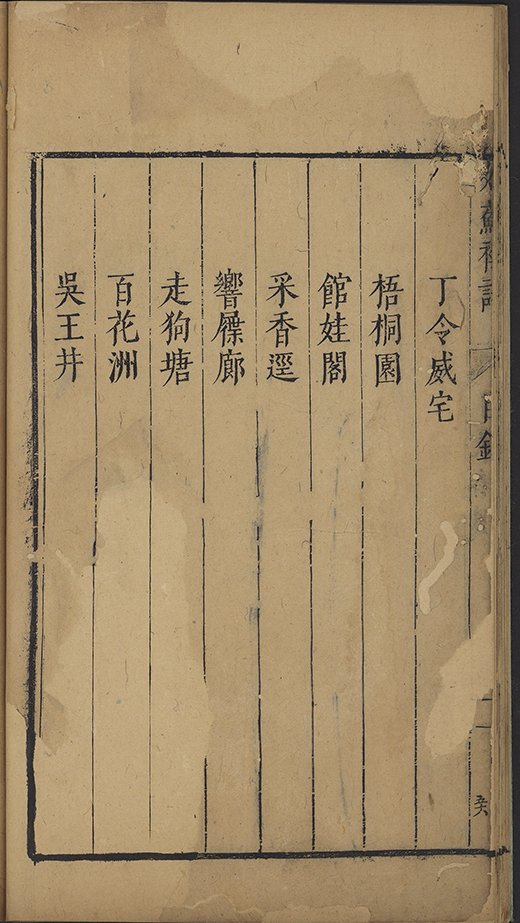 蘇雜詩
目錄
二
丁令威宅
梧桐園
館娃閣
采香逕
響屧廊
走狗塘
百花洲
吳王井